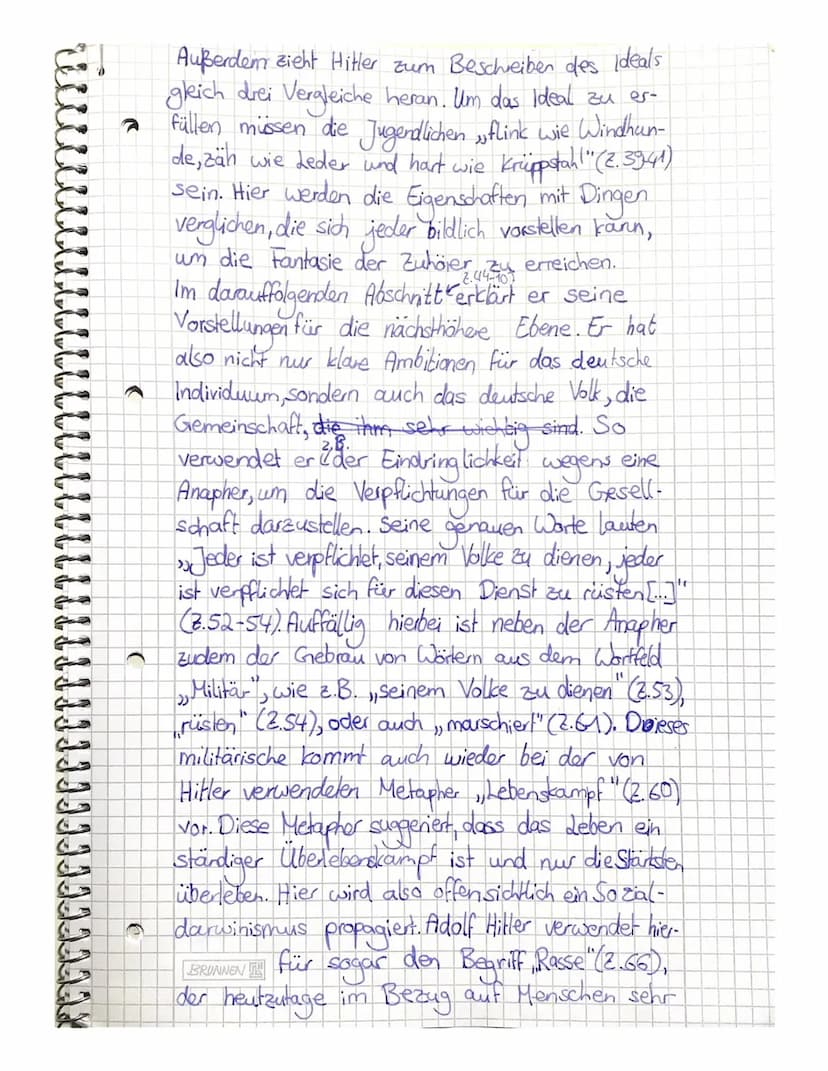 Außerdem zieht Hitler zum Beschreiben des Ideals
gleich drei Vergleiche heran. Um das Ideal zu er-
füllen müssen die Jugendlichen „flink wie Windhun-
de, zäh wie Leder und hart wie Krüppstahl" (Z.39-41)
sein. Hier werden die Eigenschaften mit Dingen
verglichen, die sich jeder bildlich vorstellen kann,
um die Fantasie der Zuhörer zu erreichen.
Im darauffolgenden Abschnitt erklärt er seine
Vorstellungen für die nächsthöhere Ebene. Er hat
also nicht nur klare Ambitionen für das deutsche
Individuum, sondern auch das deutsche Volk, die
Gemeinschaft, die ihm sehr wichtig sind. So
z.B.
verwendet er der Eindringlichkeit wegens eine
Anapher, um die Verpflichtungen für die Gesell-
schaft darzustellen. Seine genauen Worte lauten
„Jeder ist verpflichtet, seinem Volke zu dienen, jeder
ist verpflichtet sich für diesen Dienst zu rüsten [...]"
(Z.52-54). Auffällig hierbei ist neben der Anapher
zudem der Gebrau von Wörtern aus dem Wortfeld
„Militär", wie z.B. „seinem Volke zu dienen" (Z.53),
„rüsten" (Z.54), oder auch „marschiert" (Z.61). Dieses
militärische kommt auch wieder bei der von
Hitler verwendeten Metapher „Lebenskampf" (Z.60)
vor. Diese Metapher suggeriert, dass das Leben ein
ständiger Überlebenskampf ist und nur die Stärksten
überleben. Hier wird also offensichtlich ein Sozial-
darwinismus propagiert. Adolf Hitler verwendet hier-
BRUNNEN für sogar den Begriff „Rasse" (Z.66),
der heutzutage im Bezug auf Menschen sehr